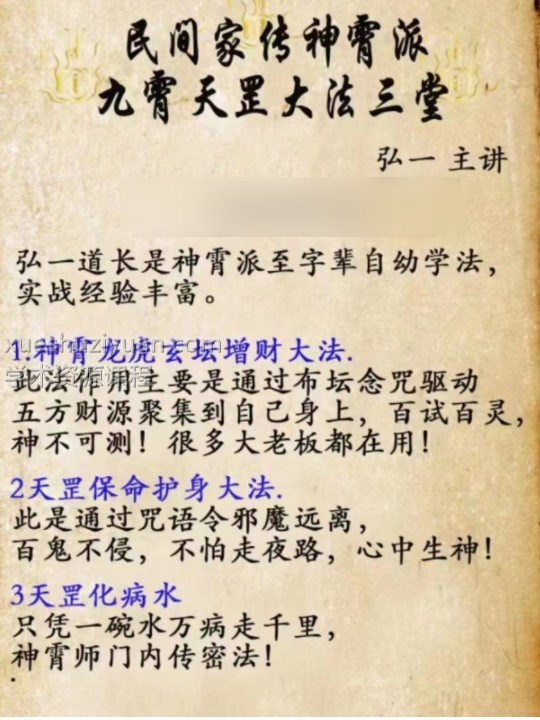 民间家传神霄派
九霄天罡大法三堂
弘一 主讲
弘一道长是神霄派至字辈自幼学法，
实战经验丰富。
1.神霄龙虎玄坛增财大法.
此法作用主要是通过布坛念咒驱动
五方财源聚集到自己身上，百试百灵，
神不可测！很多大老板都在用！
2天罡保命护身大法.
此是通过咒语令邪魔远离，
百鬼不侵，不怕走夜路，心中生神！
3天罡化病水
只凭一碗水万病走千里，
神霄师门内传密法！
xueshuziyuan.com
学术资源课程